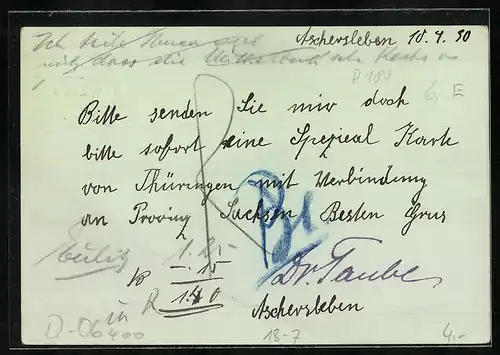 Ich teile Ihnen
mit, dass die
Aschersleben 18.4.30
P 189
6. E
Bitte senden Sie mir doch
bitte sofort eine Spezieal Karte
von Thüringen mit Verbindung
an Proving Sachsen Besten Grus
Dr. Taube
Aschersleben
1.25
-.15
1.40
in R
D-06400
18-7
4,-